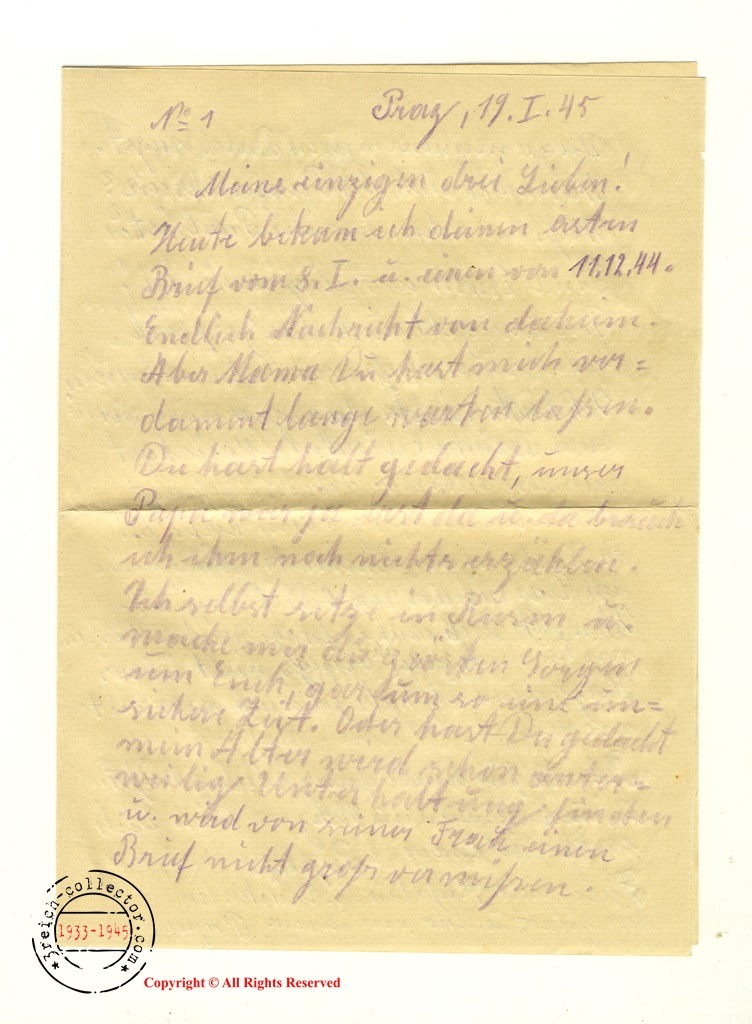 No 1
Prag, 19. I. 45
Meine einzigen drei Lieben!
Heute bekam ich deinen ersten
Brief vom 8. I. u. einen von 11.12.44.
Endlich Nachricht von daheim.
Aber Mama Du hast mich ver=
dammt lange warten laßen.
Du hast halt gedacht, unser
Papa war ja erst da u. da brauch
ich ihm noch nichts erzählen.
Ich selbst sitze in Rusin u.
mache mir die größten Sorgen
um Euch, gar um so eine un=
sichere Zeit. Oder hast Du gedacht
mein Alter wird schon anter=
weilig Unterhaltung finden
u. wird von seiner Frau einen
Brief nicht groß vermißen.
3reich-collector.com
1933-1945
Copyright © All Rights Reserved